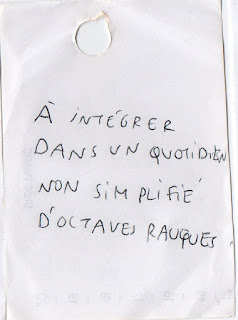 À INTÉGRER
DANS UN QUOTIDIEN
NON SIMPLIFIÉ
D'OCTAVES RAUQUES.